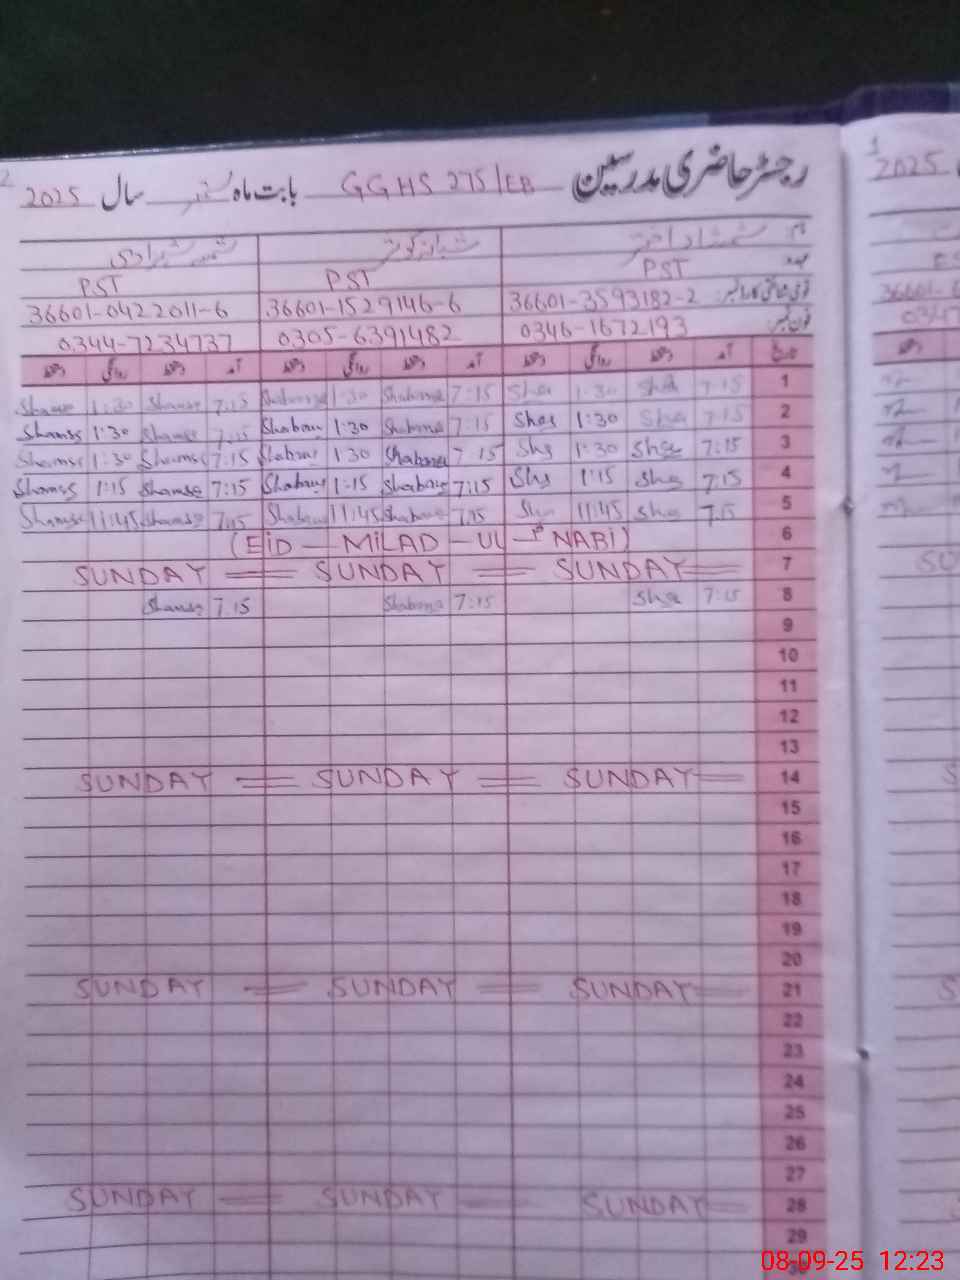 رجسٹر حاضری مدرسین GGHS 275/EB بابت ماہ ستمبر سال 2025
نام شمشاد اختر شبانہ کوثر
عہدہ PST PST PST
قومی شناختی کارڈ نمبر: 36601-3593182-2 36601-1529146-6 36601-0422011-6
فون نمبر: 0346-1672193 0305-6391482 0344-7234737
تاریخ آمد دستخط روانگی دستخط آمد دستخط روانگی دستخط آمد دستخط روانگی دستخط
1 7:15 Sha 1:30 Sha 7:15 Shabana 1:30 Shabana 7:15 Shamse 1:30 Shamse
2 7:15 Sha 1:30 Sha 7:15 Shabana 1:30 Shabana 7:15 Shamse 1:30 Shamse
3 7:15 Sha 1:30 Shs 7:15 Shabana 1:30 Shabana 7:15 Shamse 1:30 Shamse
4 7:15 Sha 1:15 Shs 7:15 Shabana 1:15 Shabana 7:15 Shamse 1:15 Shamse
5 7:15 Sha 11:45 Sha 7:15 Shabana 11:45 Shabana 7:15 Shamse 11:45 Shamse
6 (EID - MILAD - UL - NABI)
7 SUNDAY SUNDAY SUNDAY
8 7:15 Sha 7:15 Shabana 7:15 Shamse
9
10
11
12
13
14 SUNDAY SUNDAY SUNDAY
15
16
17
18
19
20
21 SUNDAY SUNDAY SUNDAY
22
23
24
25
26
27
28 SUNDAY SUNDAY SUNDAY
29
30
2
1
2025
08-09-25 12:23